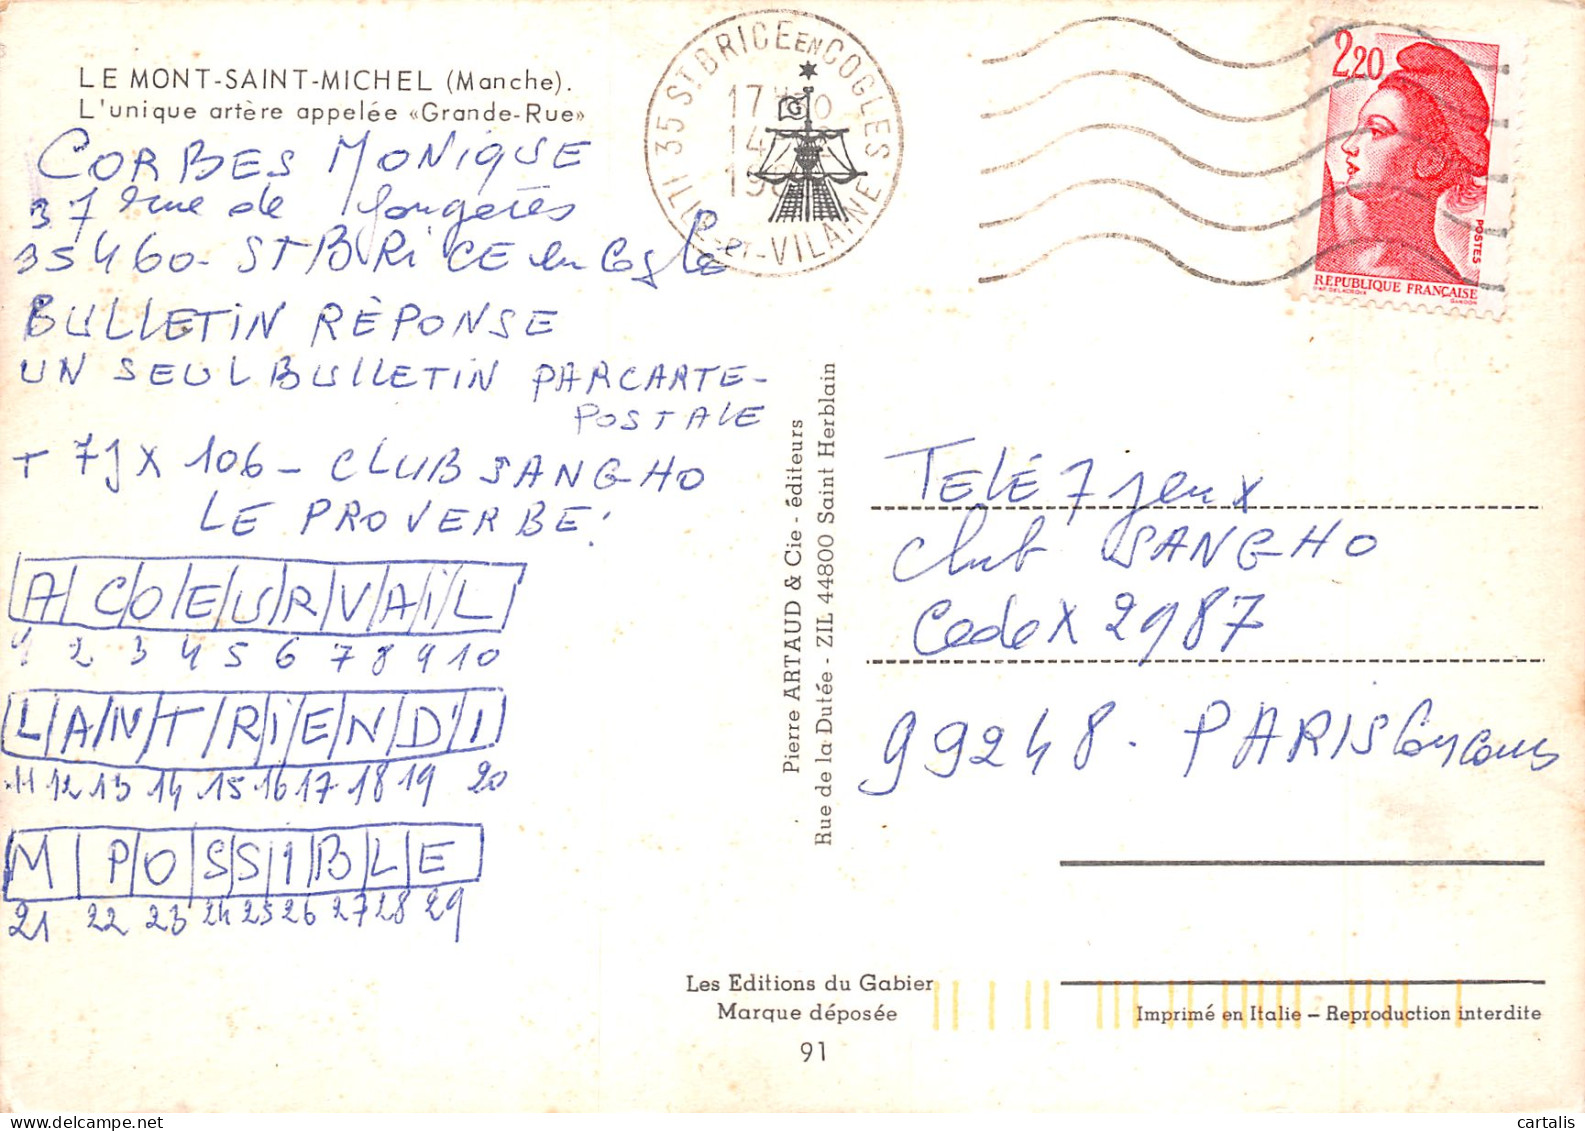 LE MONT-SAINT-MICHEL (Manche).
L'unique artère appelée «Grande-Rue»
CORBES MONIQUE
37 rue de fougères
35460 - ST BRICE en Cogle
BULLETIN RÉPONSE
UN SEUL BULLETIN PAR CARTE-
POSTALE
+ 7J X 106 - CLUB SANGHO
LE PROVERBE:
A COEUR VAIL
1 2 3 4 5 6 7 8 9 10
LANT RIEN D'I
11 12 13 14 15 16 17 18 19 20
M POSSIBLE
21 22 23 24 25 26 27 28 29
35 ST. BRICE EN COGLES
ILLE-ET-VILAINE
17 H
14
19
G
2,20
POSTES
RÉPUBLIQUE FRANÇAISE
Pierre ARTAUD & Cie - éditeurs
Rue de la Dutée - ZIL 44800 Saint Herblain
TELÉ 7 Jeux
Club SANGHO
Cedex 2987
99248 - PARIS Concours
Les Editions du Gabier
Marque déposée
91
Imprimé en Italie – Reproduction interdite
cartalis